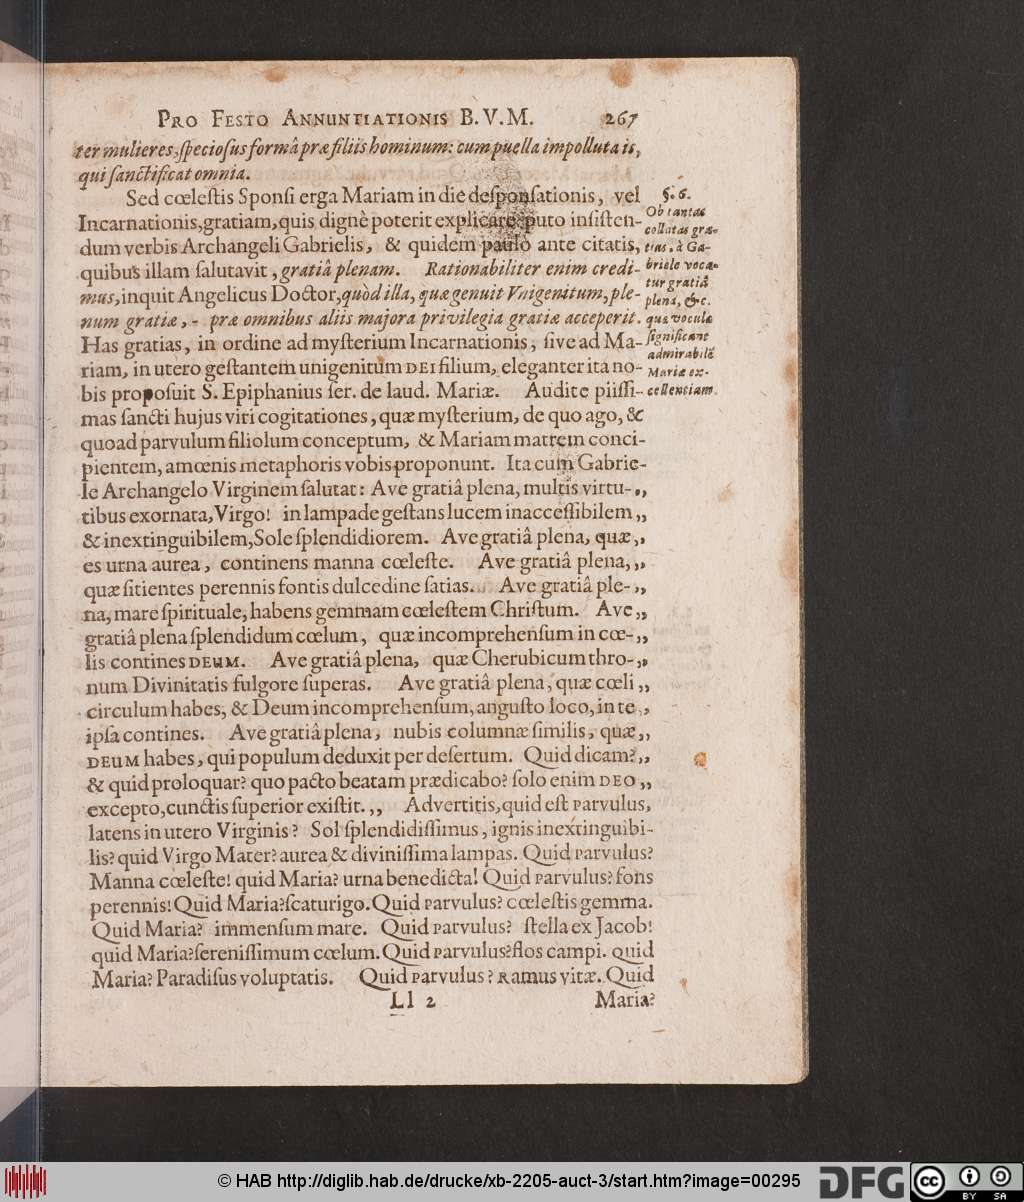 PRO FESTO ANNUNTIATIONIS B.V.M. 267
ter mulieres, ſpecioſus formâ præ filiis hominum: cum puella impolluta is,
qui ſanctificat omnia.
Sed cœleſtis Sponſi erga Mariam in die deſponſationis, vel
Incarnationis, gratiam, quis dignè poterit explicare? puto inſiſten-
dum verbis Archangeli Gabrielis, & quidem paulò ante citatis,
quibus illam ſalutavit, gratiâ plenam. Rationabiliter enim credi-
mus, inquit Angelicus Doctor, quòd illa, quæ genuit Vnigenitum, ple-
num gratiæ, - præ omnibus aliis majora privilegia gratiæ acceperit.
Has gratias, in ordine ad myſterium Incarnationis, ſive ad Ma-
riam, in utero geſtantem unigenitum DEI filium, eleganter ita no-
bis propoſuit S. Epiphanius ſer. de laud. Mariæ. Audite piiſſi-
mas ſancti hujus viri cogitationes, quæ myſterium, de quo ago, &
quoad parvulum filiolum conceptum, & Mariam matrem conci-
pientem, amœnis metaphoris vobis proponunt. Ita cum Gabrie-
le Archangelo Virginem ſalutat: Ave gratiâ plena, multis virtu- ,,
tibus exornata, Virgo! in lampade geſtans lucem inacceſſibilem ,,
& inextinguibilem, Sole ſplendidiorem. Ave gratiâ plena, quæ ,,
es urna aurea, continens manna cœleſte. Ave gratiâ plena, ,,
quæ ſitientes perennis fontis dulcedine ſatias. Ave gratiâ ple- ,,
na, mare ſpirituale, habens gemmam cœleſtem Chriſtum. Ave ,,
gratiâ plena ſplendidum cœlum, quæ incomprehenſum in cœ- ,,
lis contines DEUM. Ave gratiâ plena, quæ Cherubicum thro- ,,
num Divinitatis fulgore ſuperas. Ave gratiâ plena, quæ cœli ,,
circulum habes, & Deum incomprehenſum, anguſto loco, in te ,,
ipſa contines. Ave gratiâ plena, nubis columnæ ſimilis, quæ ,,
DEUM habes, qui populum deduxit per deſertum. Quid dicam? ,,
& quid proloquar? quo pacto beatam prædicabo? ſolo enim DEO ,,
excepto, cunctis ſuperior exiſtit. ,, Advertitis, quid eſt parvulus,
latens in utero Virginis? Sol ſplendidiſſimus, ignis inextinguibi-
lis? quid Virgo Mater? aurea & diviniſſima lampas. Quid parvulus?
Manna cœleſte! quid Maria? urna benedicta! Quid parvulus? fons
perennis! Quid Maria? ſcaturigo. Quid parvulus? cœleſtis gemma.
Quid Maria? immenſum mare. Quid parvulus? ſtella ex Jacob!
quid Maria? ſereniſſimum cœlum. Quid parvulus? flos campi. quid
Maria? Paradiſus voluptatis. Quid parvulus? Ramus vitæ. Quid
Ll 2 Maria?
§. 6.
Ob tantas
collatas gra-
tias, à Ga-
briele voca-
tur gratiâ
plena, &c.
quæ vocula
ſignificant
admirabilē
Mariæ ex-
cellentiam.
© HAB http://diglib.hab.de/drucke/xb-2205-auct-3/start.htm?image=00295
DFG
cc BY SA